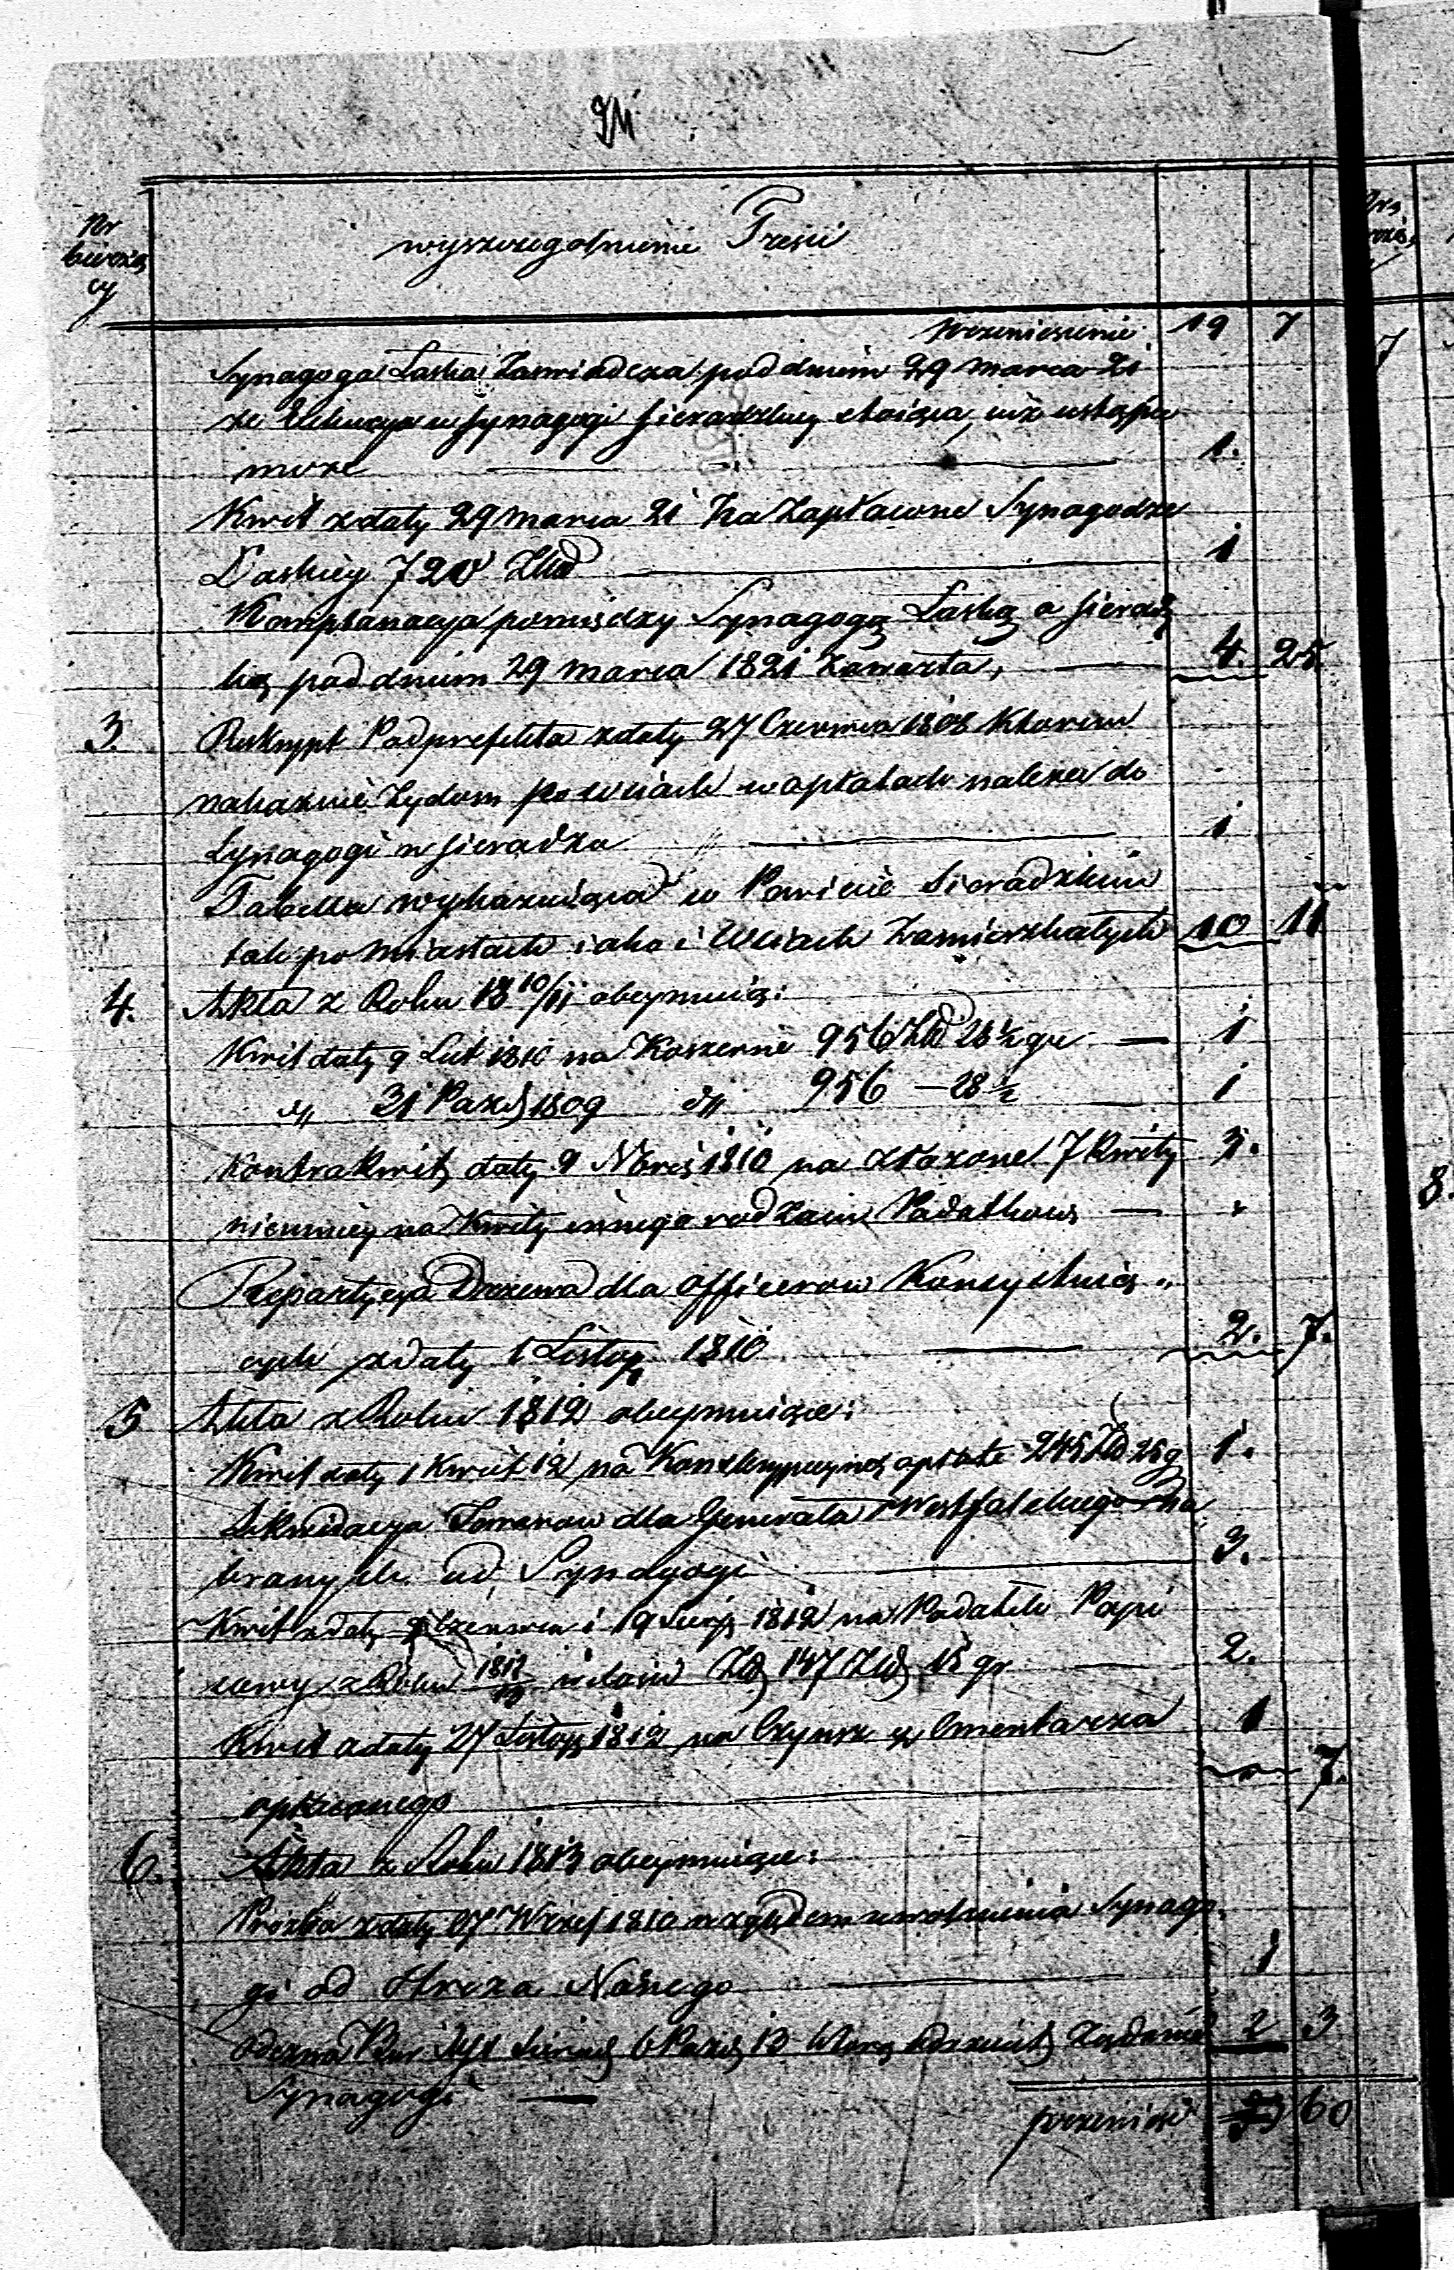 Nr
bieżą
cy
wyszczegolnienie Treści
przeniesienie 19 7
Synagoga Laska Zaswiadcza pod dniem 29 marca 21
że Exekucya w Synagogi Sieradzkiey stoiąca, iuż ustąpic
może 1.
Kwit z daty 29 marca 21 Na Zapłacone Synagodze
Laskiey 720 Złł 1
Komplanacya pomiędzy Synagogą Laską a Sieradz
ką pod dniem 29 marca 1821 Zawarta, 4. 25
3. Reskrypt Podprefekta z daty 27 Czerwca 1808 Którem
nakazuie Zydom po wsiach w opłatach należeć do
Synagogi w Sieradzu 1
Tabella wykazuiąca w Powiecie Sieradzkim
tak po Miastach iako i Wsiach Zamieszkałych 10 11
4. Akta z Roku 18 10/11 obeymuią:
Kwit daty 9 Lut 1810 na Koszerne 956 Złł 28½ gr 1
d„ 31 Pazd 1809 d„ 956 — 28½ 1
Kontrakwit daty 9 1810 na złożone 7 kwity 3.
niemniey na Kwity innego rodzaiu Podatkow
Repartycya Drzewa dla officerow Konsystuią„
cych z daty 1 Listop 1810 2. 7.
5 Akta z Roku 1812 obeymuiące:
Kwit daty 1 Kwiet 12 na Konskrypcyiną opłatę 245 Zł 25 g 1.
Likwidacya Towarow dla Generała Westfalskiego
branych od Synagogi 3.
Kwit z daty Czerwca i 19 Sierp 1812 na Podatek
z Roku 147 Złł 15 gr 2.
Kwit z daty 27 Listop 1812 na Czynsz z Cmentarza 1
opłaconego 7.
6. Akta z Roku 1813 obeymuiące:
Prozba z daty 07 Wrzes 1810 względem uwolnienia Synago
gi od Stroza Nocnego 1
Odezwa 6 Pazd 13 Żądanie 2 3
Synagogi
przenieść 60